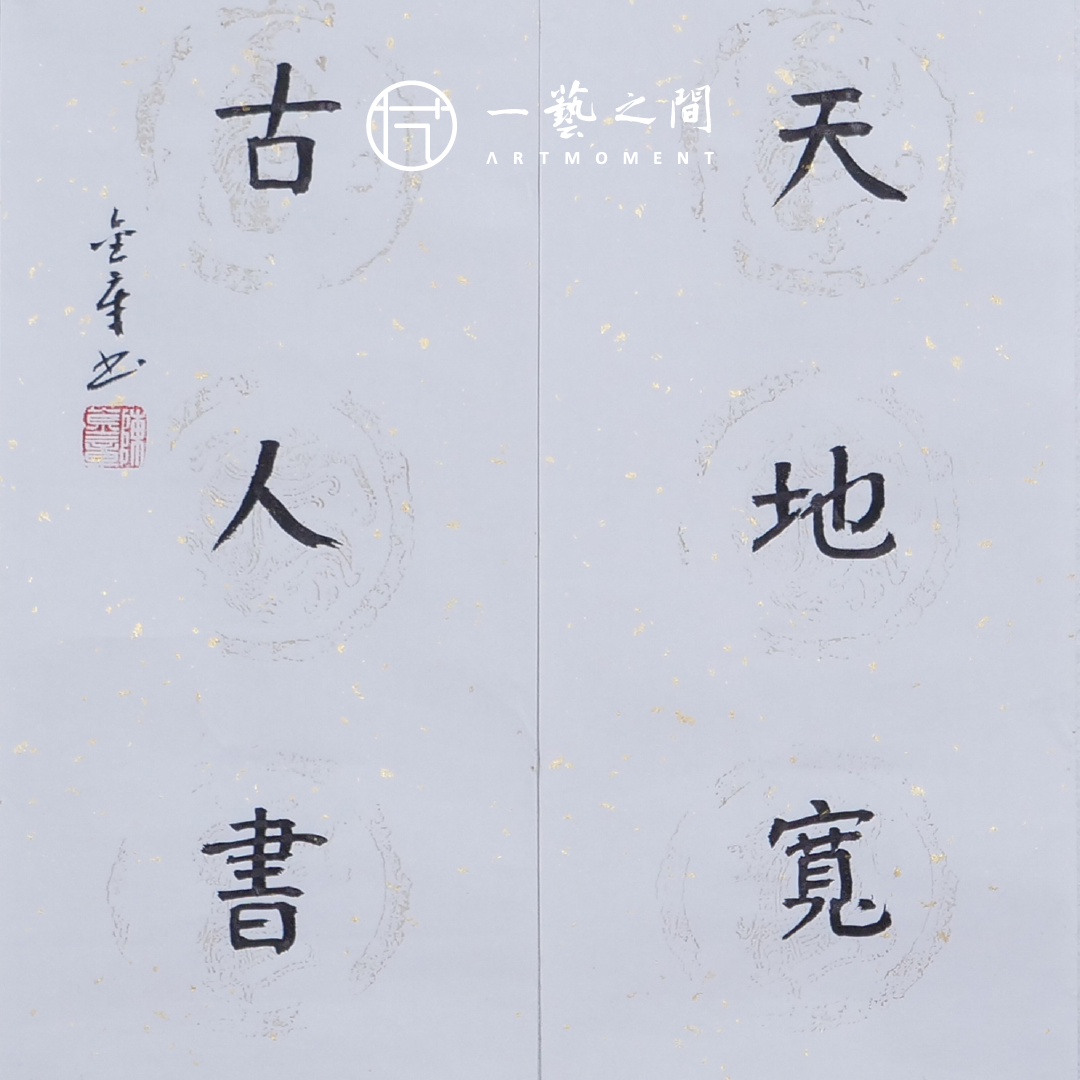 一藝之間
ARTMOMENT
天地寬
古人書
金章书